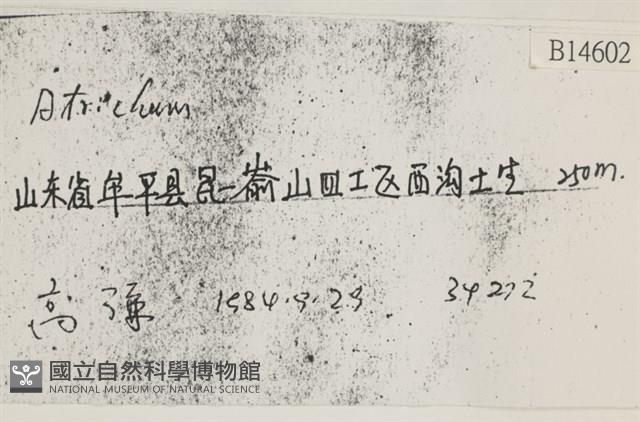 B14602
Atrichum
山东省牟平县昆嵛山四工区西沟土生 250m.
高 1984.9.29 34272
國立自然科學博物館
NATIONAL MUSEUM OF NATURAL SCIENCE